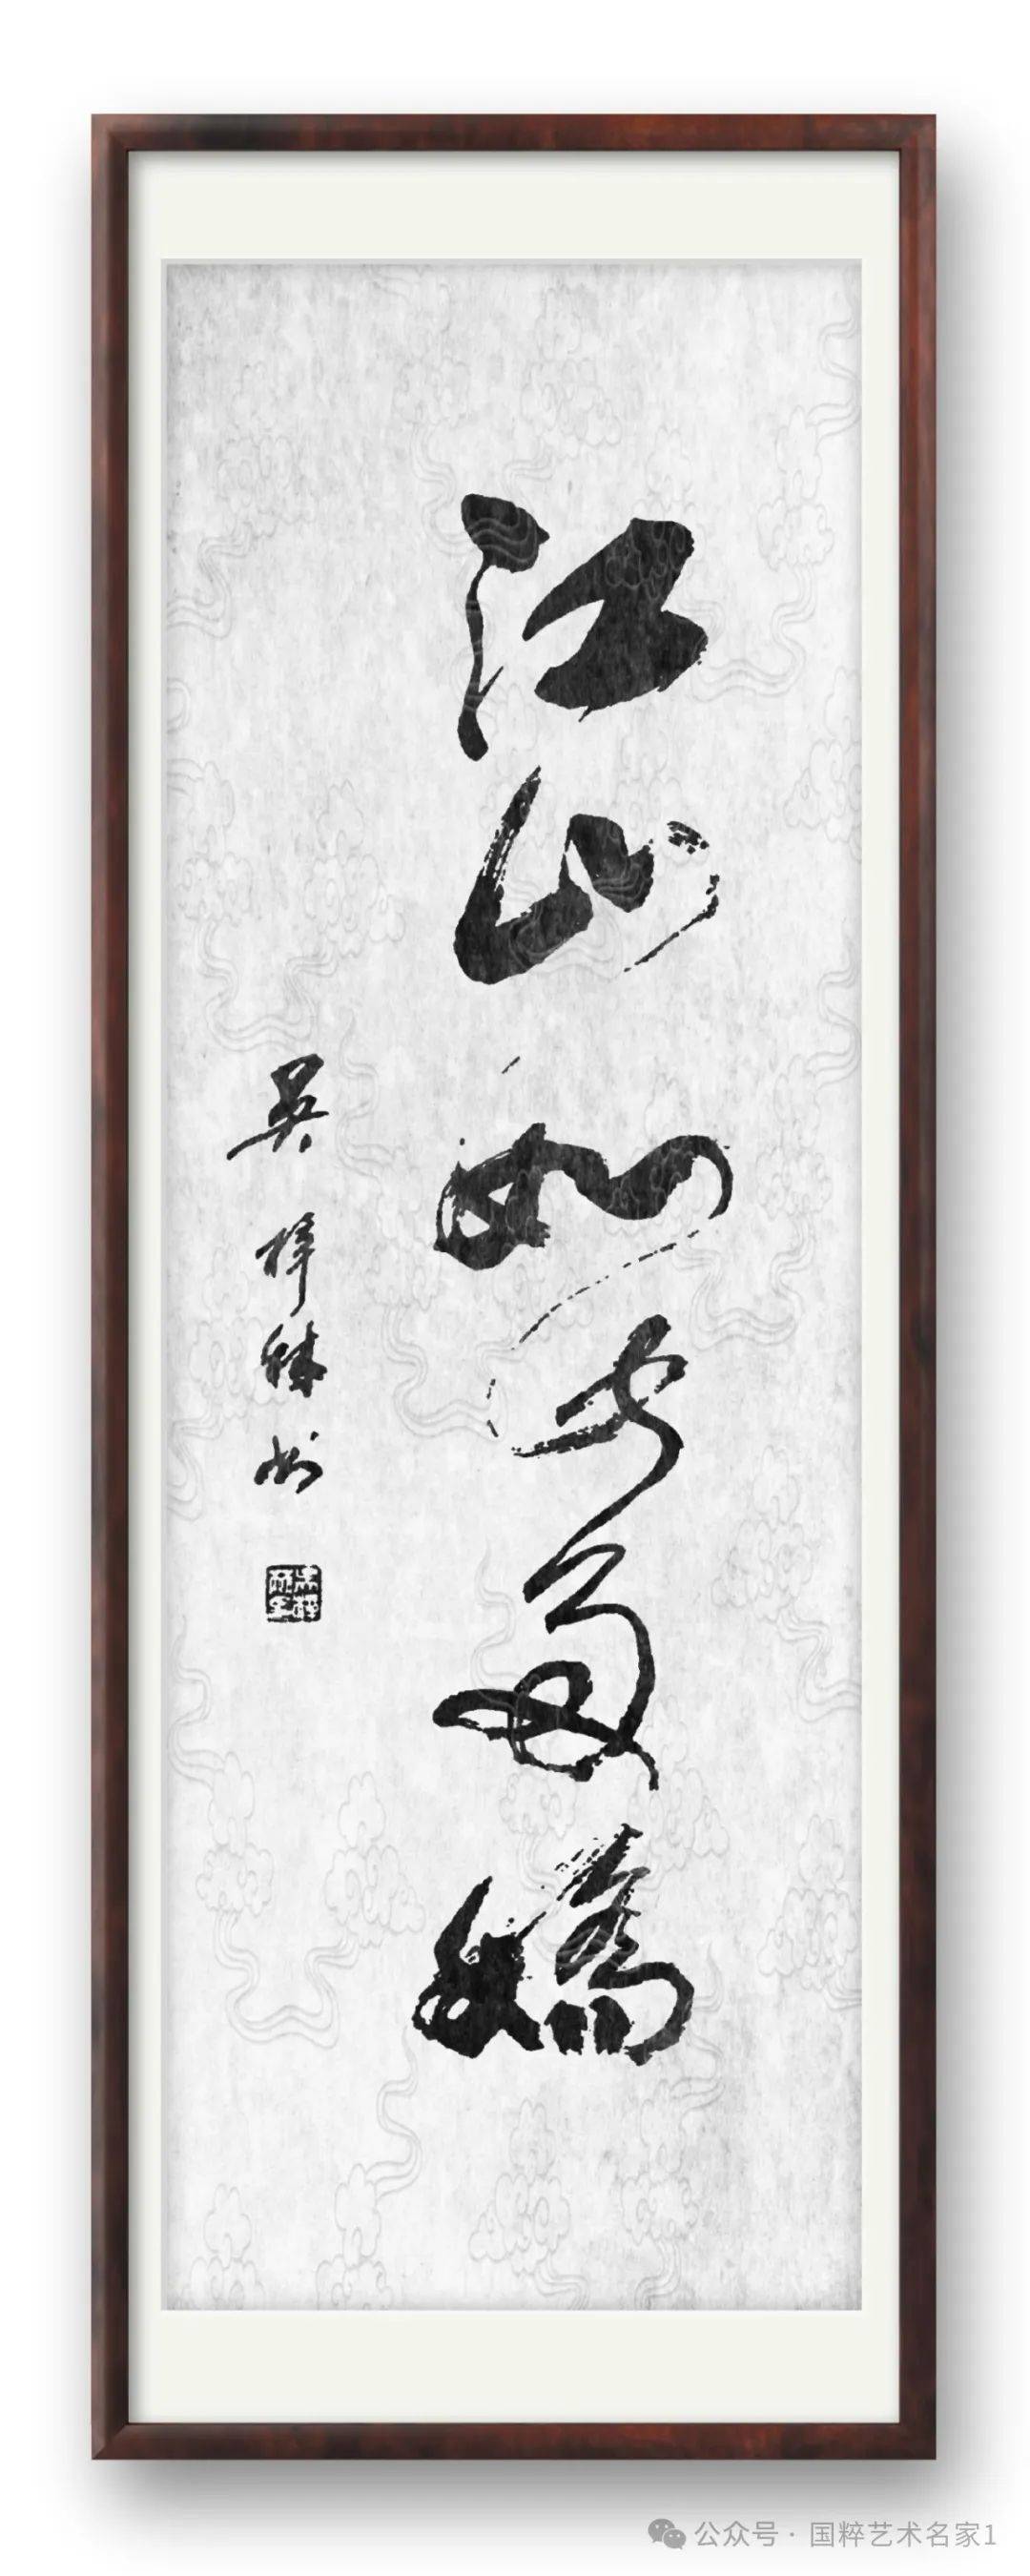 江山如此多嬌
吴梓林书
公众号 · 国粹艺术名家1